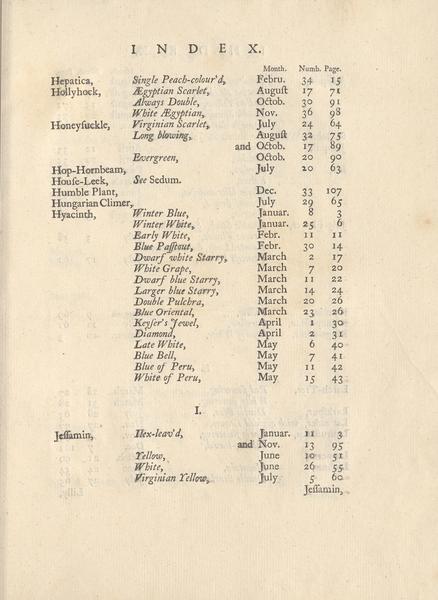 INDEX.
Month. Numb. Page.
Hepatica, Single Peach-colour'd, Febru. 34 15
Hollyhock, Ægyptian Scarlet, Auguſt 17 71
Always Double, Octob. 30 91
White Ægyptian, Nov. 36 98
Honeyſuckle, Virginian Scarlet, July 24 64
Long blowing, Auguſt 32 75
and Octob. 17 89
Evergreen, Octob. 20 90
Hop-Hornbeam, July 20 63
Houſe-Leek, See Sedum.
Humble Plant, Dec. 33 107
Hungarian Climer, July 29 65
Hyacinth, Winter Blue, Januar. 8 3
Winter White, Januar. 25 6
Early White, Febr. 11 11
Blue Paſtout, Febr. 30 14
Dwarf white Starry, March 2 17
White Grape, March 7 20
Dwarf blue Starry, March 11 22
Larger blue Starry, March 14 24
Double Pulchra, March 20 26
Blue Oriental, March 23 26
Keyſer's Jewel, April 1 30
Diamond, April 2 31
Late White, May 6 40
Blue Bell, May 7 41
Blue of Peru, May 11 42
White of Peru, May 15 43
I.
Jeſſamin, Ilex-leav'd, Januar. 11 3
and Nov. 13 95
Yellow, June 10 51
White, June 26 55
Virginian Yellow, July 5 60
Jeſſamin,